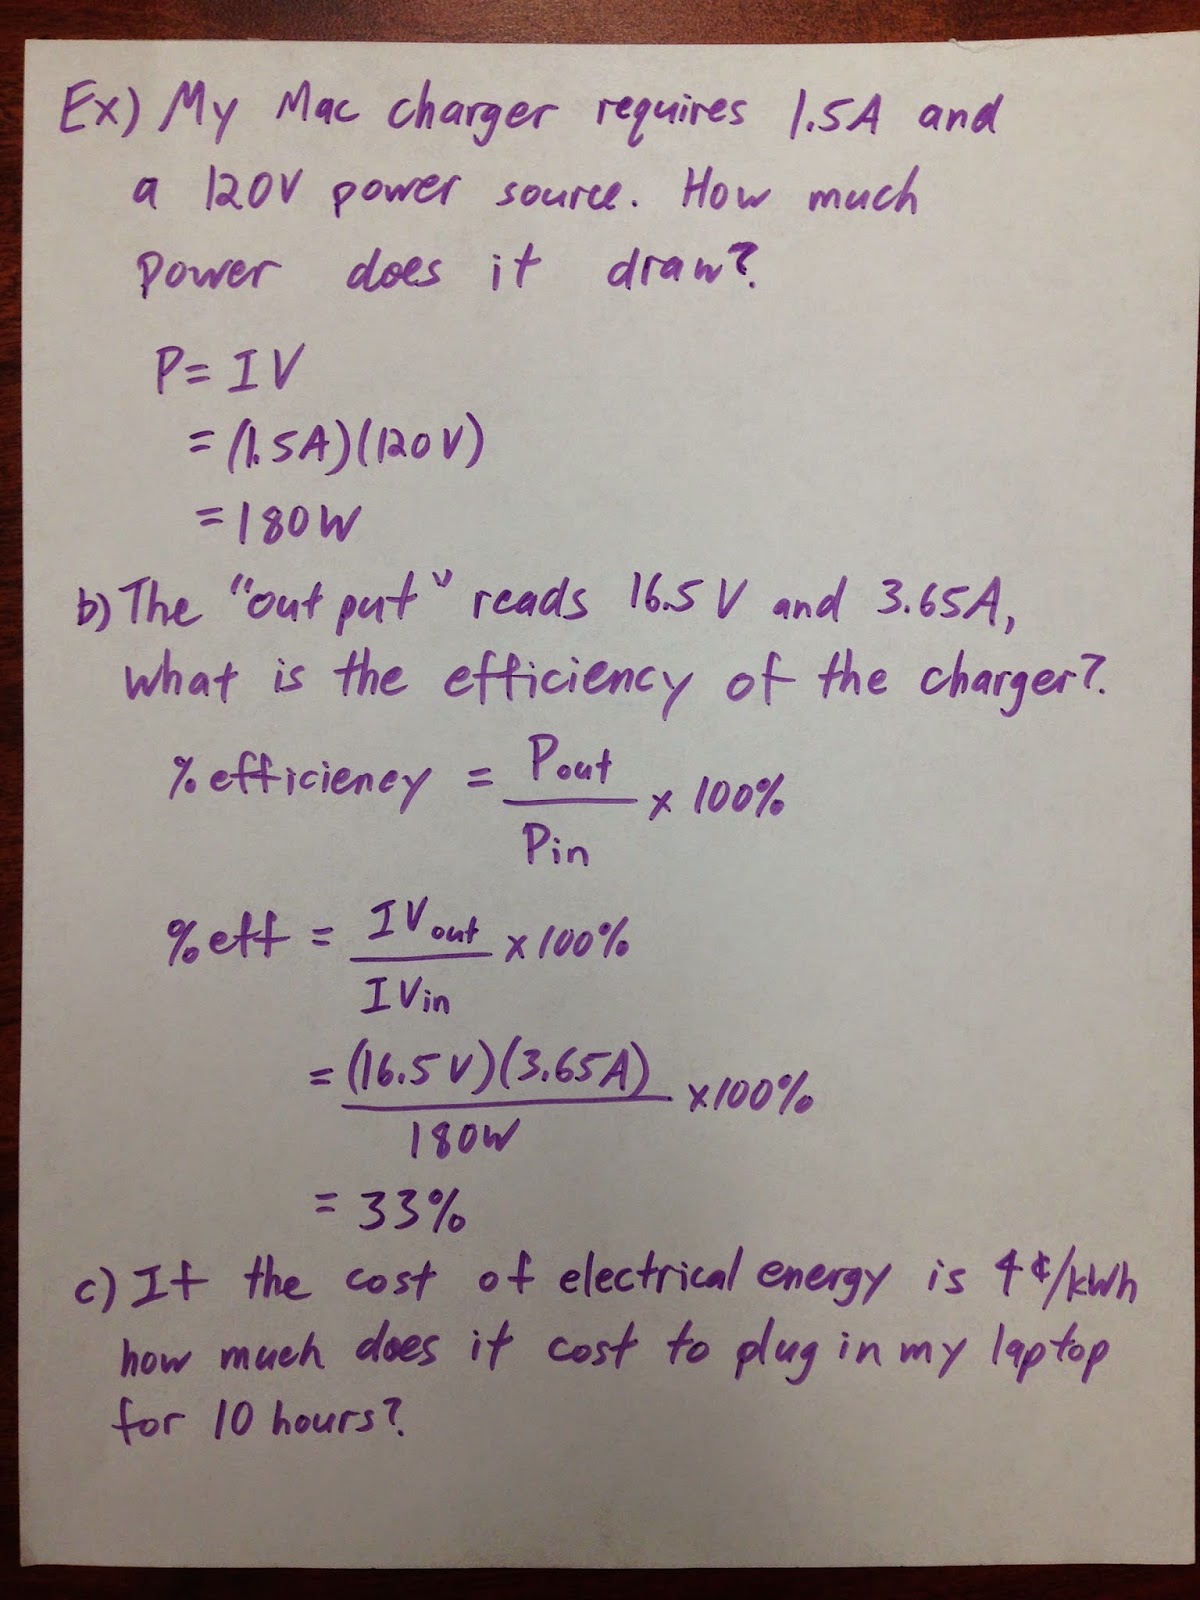 Ex) My Mac charger requires 1.5A and
a 120V power source. How much
power does it draw?
P = IV
= (1.5A)(120V)
= 180W
b) The "output" reads 16.5 V and 3.65A,
what is the efficiency of the charger?
% efficiency = Pout / Pin x 100%
% eff = IVout / IVin x 100%
= (16.5V)(3.65A) / 180W x 100%
= 33%
c) If the cost of electrical energy is 4¢/kWh
how much does it cost to plug in my laptop
for 10 hours?